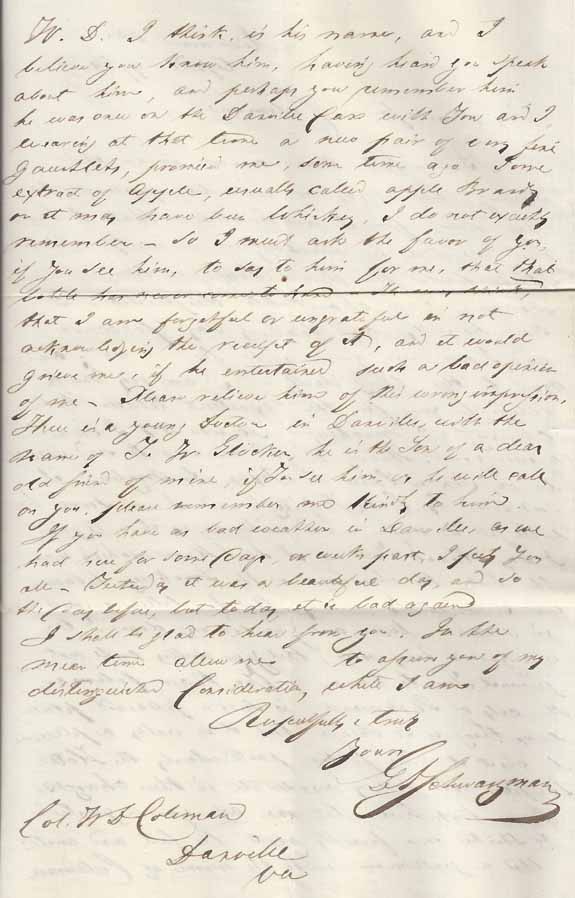 W. D. I think, is his name, and I
believe you know him, having heard you speak
about him, and perhaps you remember him
he was one on the Danville Cars with You and I,
wearing at that time a new pair of very fine
Gauntlets, promised me, some time ago some
extract of Apple, usually called apple Brandy
or it may have been Whiskey, I do not exactly
remember – so I must ask the favor of you,
if You see him, to say to him for me, that that
bottle has never come to hand
that I am forgetful or ungrateful in not
acknowledging the receipt of it, and it would
grieve me, if he entertained such a bad opinion
of me – Please relieve him of this wrong impression,
There is a young Doctor in Danville, with the
name of T. W. he is the Son of a dear
old friend of mine, if You see him, or he will call
on you, please remember me kindly to him.
If you have as bad weather in Danville, as we
had here for some days, or weeks past, I pity You
all – Yesterday it was a beautiful day, and so
the day before, but today it is bad again
I shall be glad to hear from you. In the
mean time allow me to assure you of my
distinguished Consideration, while I am
Respectfully & truly
Yours
Schwarzman
Col. W D Coleman
Danville
Va